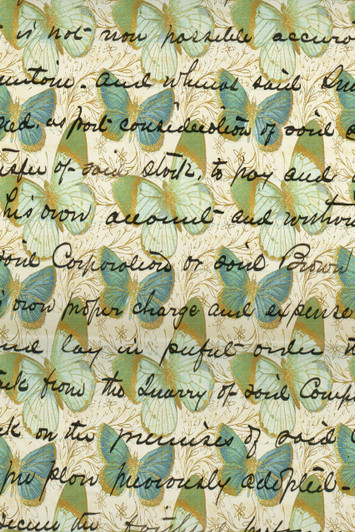 is not now possible accura
. and whereas said
ed, as part consideration of said
sfer of said stock, to pay and
his own account and witho
said Corporation or said Brown
s own proper charge and expense
nd lay in put order
from the Quarry of said Comp
k on the premises of said
plan previously adopted-
secure the